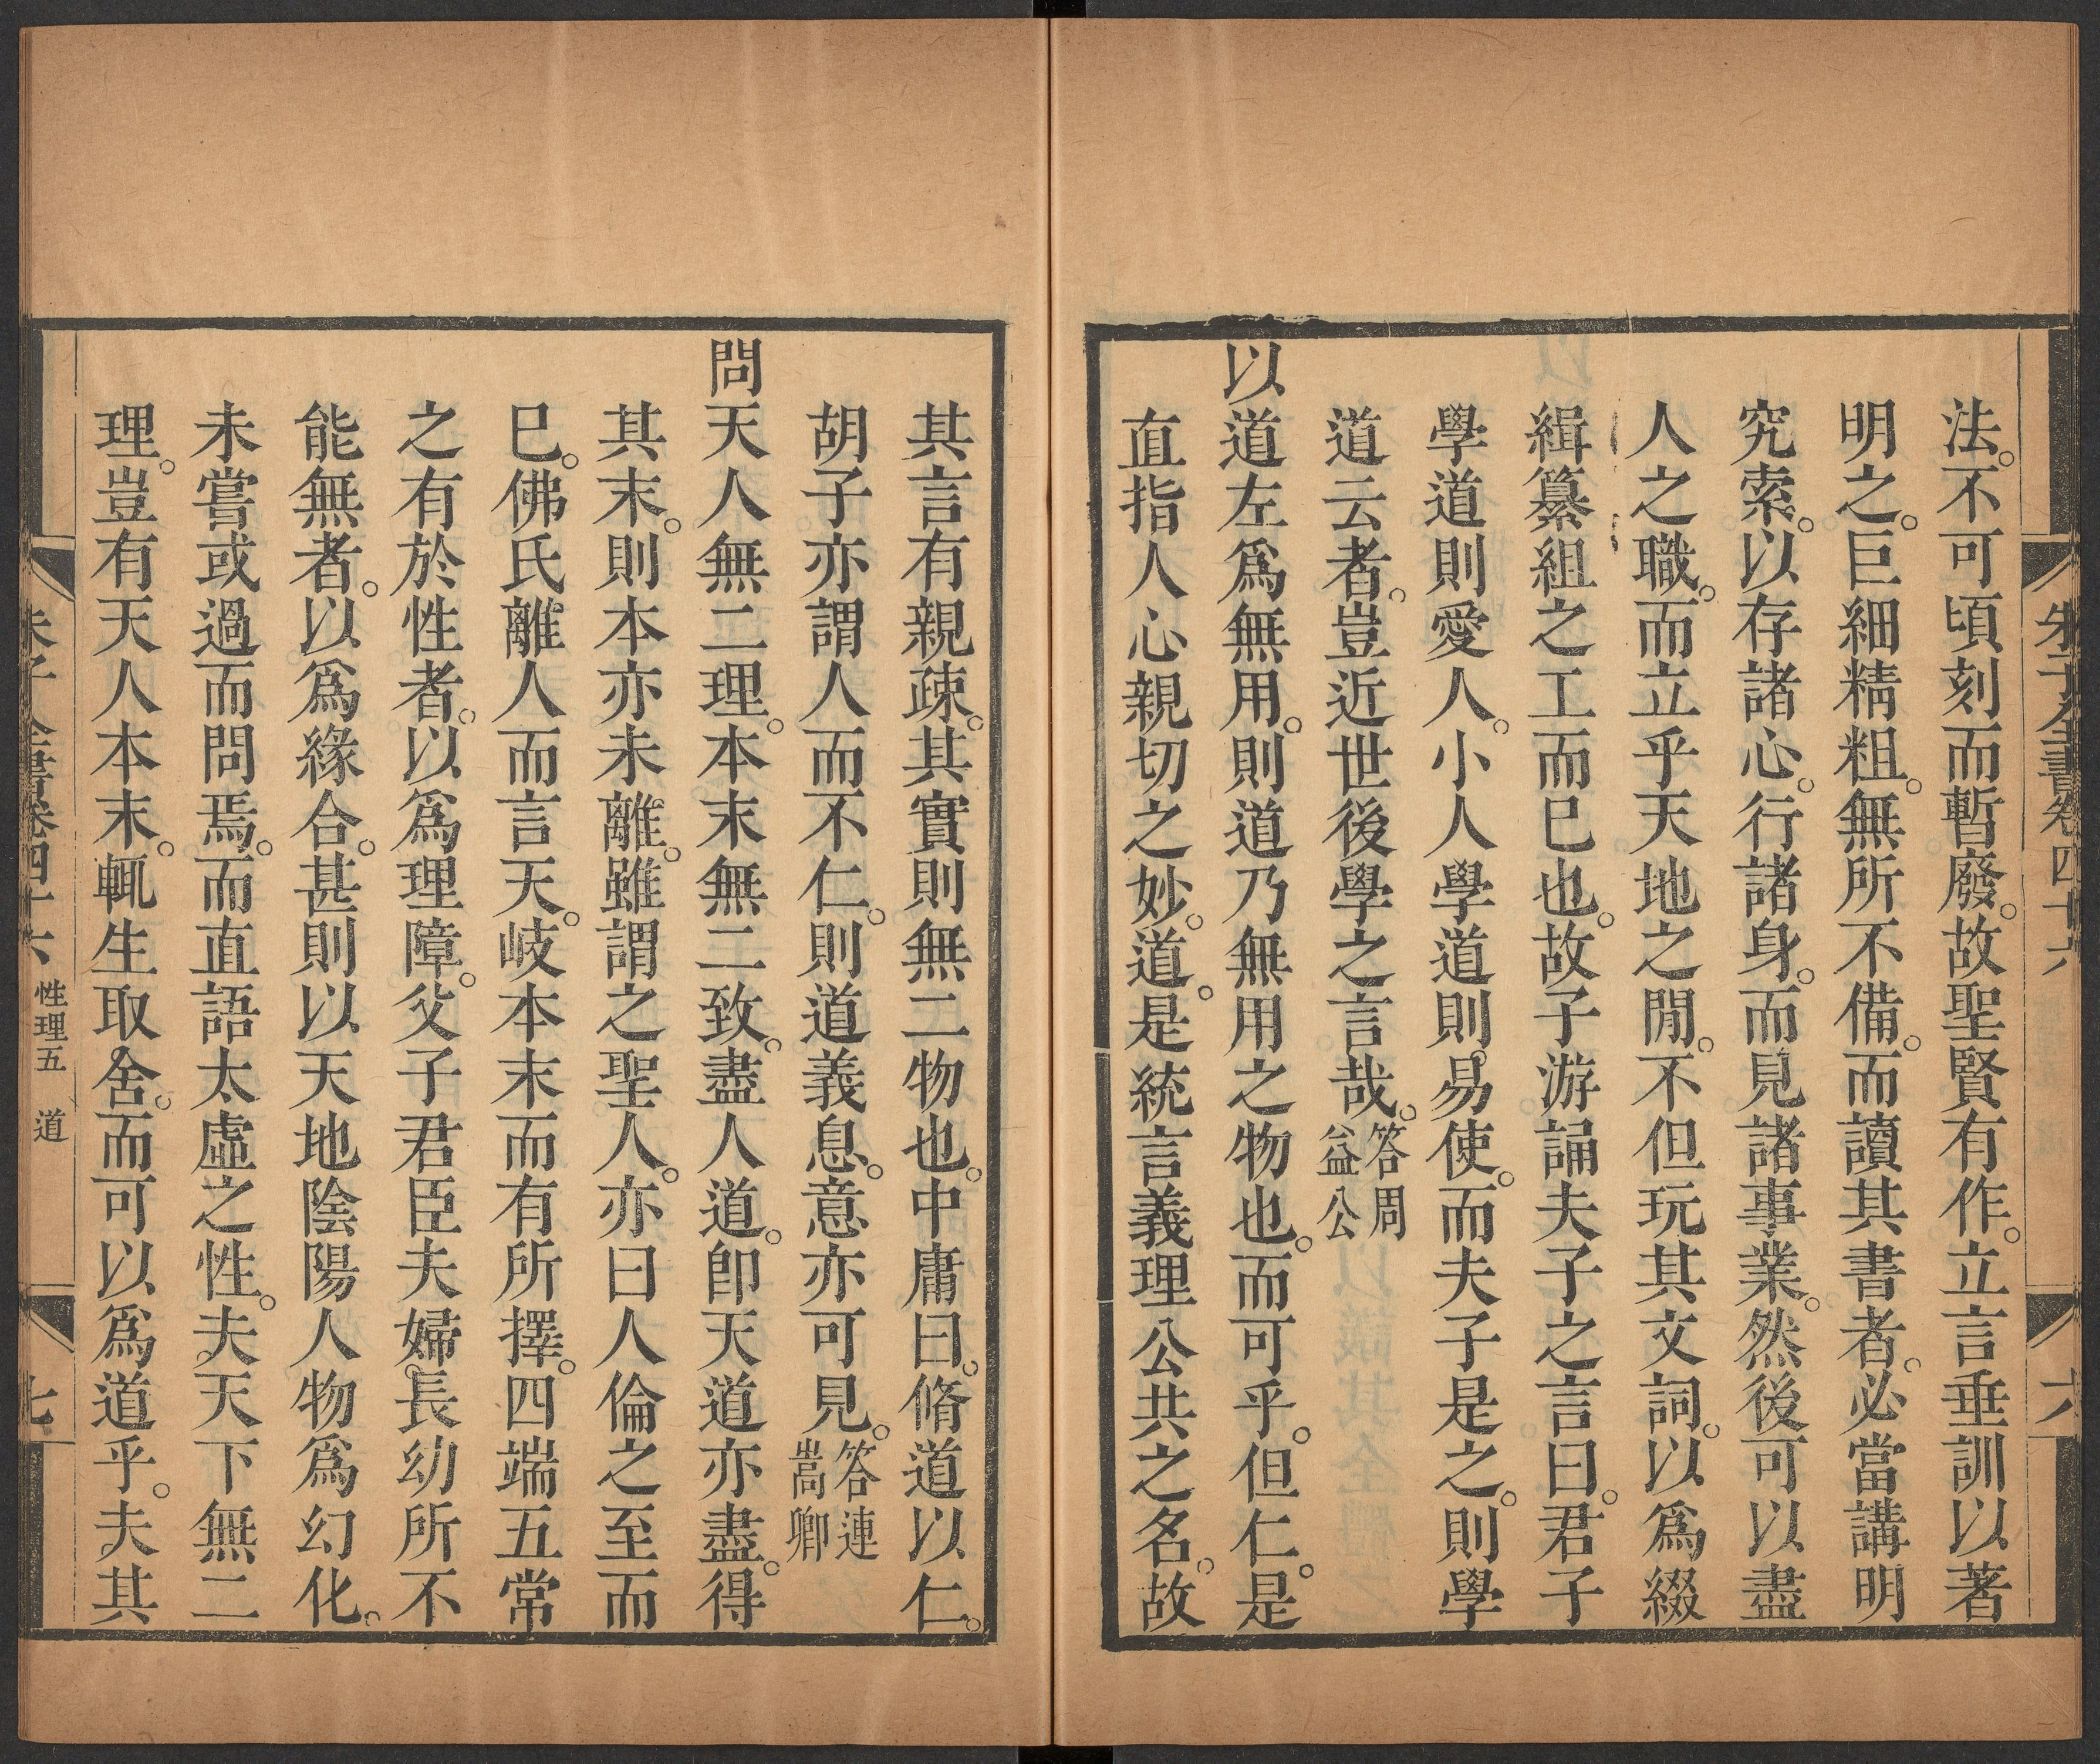 朱子全書卷四十六
六
法。不可頃刻而暫廢。故聖賢有作。立言垂訓以著
明之。巨細精粗。無所不備。而讀其書者。必當講明
究索。以存諸心。行諸身。而見諸事業。然後可以盡
人之職。而立乎天地之閒。不但玩其文詞。以爲綴
緝纂組之工而已也。故子游誦夫子之言曰。君子
學道則愛人。小人學道則易使。而夫子是之。則學
道云者。豈近世後學之言哉。答周益公
以道左爲無用。則道乃無用之物也。而可乎。但仁。是
直指人心親切之妙。道。是統言義理公共之名。故
其言有親疎。其實則無二物也。中庸曰。脩道以仁。
胡子亦謂人而不仁。則道義息。意亦可見。答連嵩卿
問天人無二理。本末無二致。盡人道。卽天道亦盡。得
其末。則本亦未離。雖謂之聖人。亦曰人倫之至而
已。佛氏離人而言天。岐本末而有所擇。四端五常
之有於性者。以爲理障。父子君臣夫婦。長幼所不
能無者。以爲緣合。甚則以天地陰陽人物爲幻化。
未嘗或過而問焉。而直語太虛之性。夫天下無二
理。豈有天人本末。輒生取舍。而可以爲道乎。夫其
朱子全書卷四十六 性理五 道
七